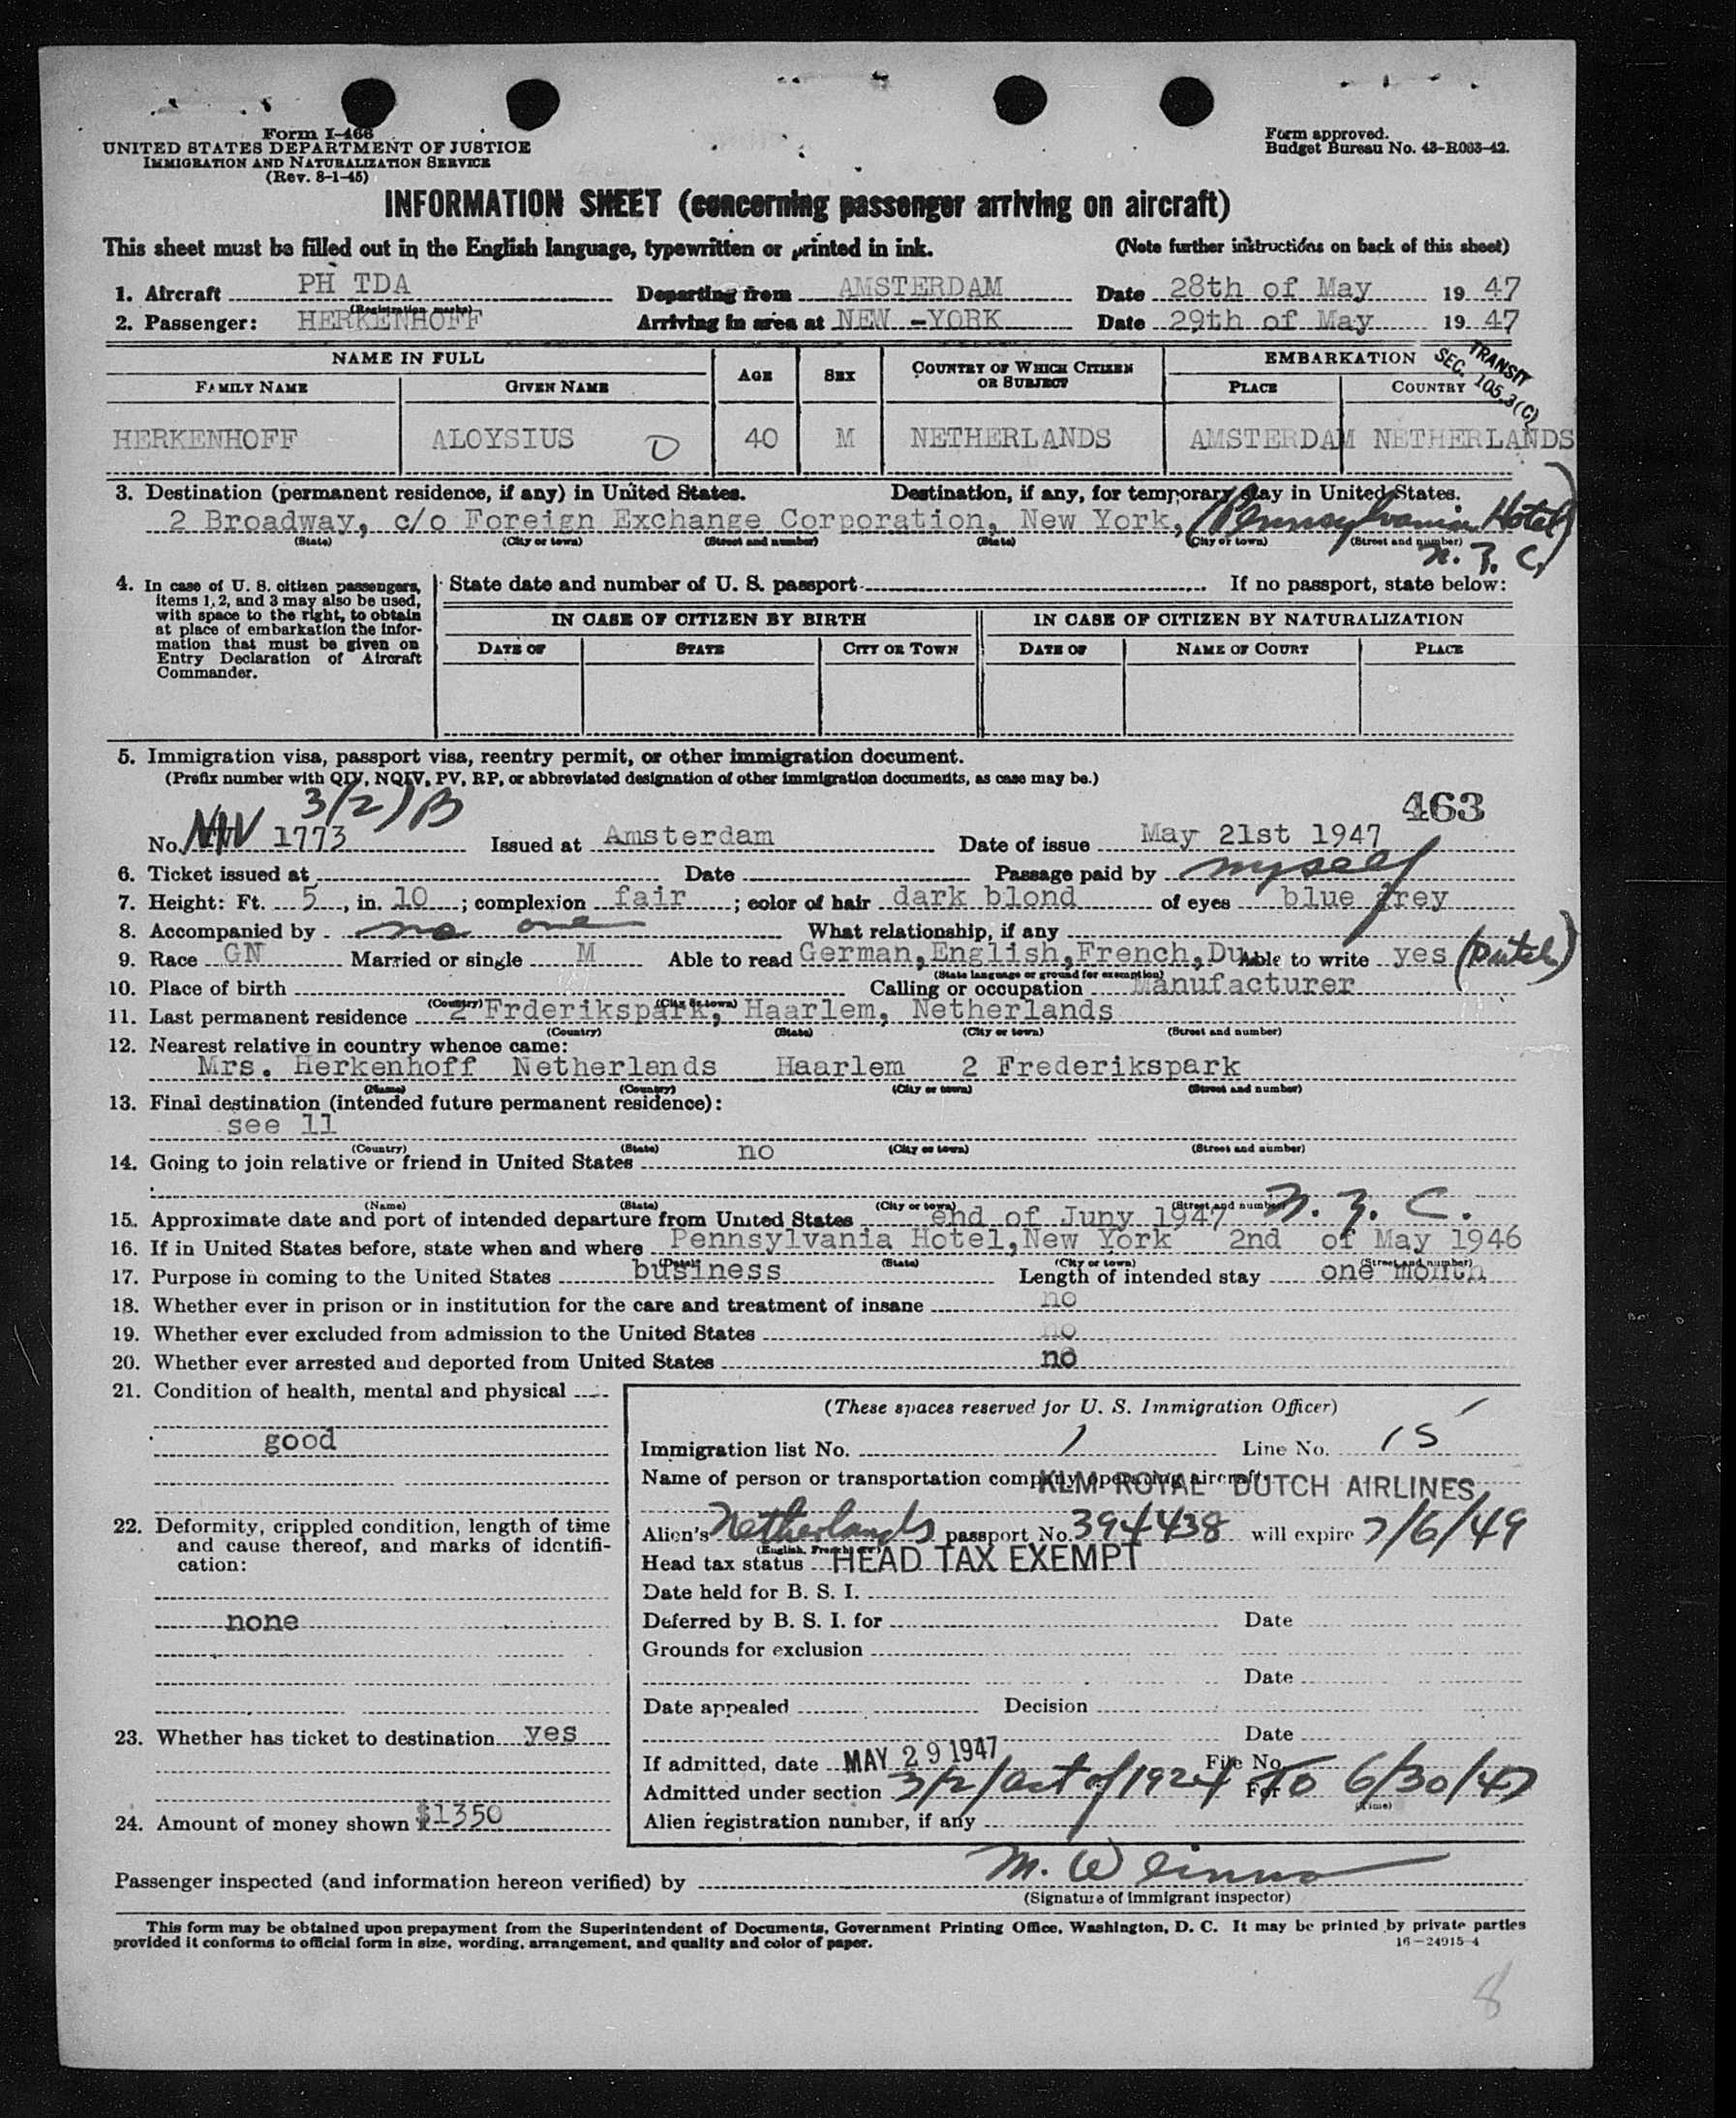 Form I-466
UNITED STATES DEPARTMENT OF JUSTICE
IMMIGRATION AND NATURALIZATION SERVICE
(Rev. 8-1-45)
Form approved.
Budget Bureau No. 43-R063-42.
INFORMATION SHEET (concerning passenger arriving on aircraft)
This sheet must be filled out in the English language, typewritten or printed in ink. (Note further instructions on back of this sheet)
1. Aircraft PH TDA Departing from AMSTERDAM Date 28th of May 19 47
(Registration marks)
2. Passenger: HERKENHOFF Arriving in area at NEW -YORK Date 29th of May 19 47
NAME IN FULL AGE SEX COUNTRY OF WHICH CITIZEN OR SUBJECT EMBARKATION
TRANSIT
SEC. 105.3(C)
FAMILY NAME GIVEN NAME PLACE COUNTRY
HERKENHOFF ALOYSIUS D 40 M NETHERLANDS AMSTERDAM NETHERLANDS
3. Destination (permanent residence, if any) in United States. Destination, if any, for temporary stay in United States.
2 Broadway, c/o Foreign Exchange Corporation, New York, (Pennsylvania Hotel)
(State) (City or town) (Street and number) (State) (City or town) (Street and number)
N. Y. C.
4. In case of U. S. citizen passengers, items 1, 2, and 3 may also be used, with space to the right, to obtain at place of embarkation the information that must be given on Entry Declaration of Aircraft Commander.
State date and number of U. S. passport If no passport, state below:
IN CASE OF CITIZEN BY BIRTH IN CASE OF CITIZEN BY NATURALIZATION
DATE OF STATE CITY OR TOWN DATE OF NAME OF COURT PLACE
5. Immigration visa, passport visa, reentry permit, or other immigration document.
(Prefix number with QIV, NQIV, PV, RP, or abbreviated designation of other immigration documents, as case may be.)
3(2)B 463
No. NIV 1773 Issued at Amsterdam Date of issue May 21st 1947
6. Ticket issued at Date Passage paid by myself
7. Height: Ft. 5, in. 10; complexion fair; color of hair dark blond of eyes blue grey
8. Accompanied by no one What relationship, if any
9. Race GN Married or single M Able to read German,English,French,Du Able to write yes (Dutch)
(State language or ground for exemption)
10. Place of birth Calling or occupation Manufacturer
(Country) (City or town)
11. Last permanent residence 2 Frderikspark, Haarlem, Netherlands
(Country) (State) (City or town) (Street and number)
12. Nearest relative in country whence came:
Mrs. Herkenhoff Netherlands Haarlem 2 Frederikspark
(Name) (Country) (City or town) (Street and number)
13. Final destination (intended future permanent residence):
see 11
(Country) (State) (City or town) (Street and number)
14. Going to join relative or friend in United States no
(Name) (State) (City or town) (Street and number)
15. Approximate date and port of intended departure from United States end of Juny 1947 N. Y. C.
16. If in United States before, state when and where Pennsylvania Hotel,New York 2nd of May 1946
(Date) (State) (City or town) (Street and number)
17. Purpose in coming to the United States business Length of intended stay one month
18. Whether ever in prison or in institution for the care and treatment of insane no
19. Whether ever excluded from admission to the United States no
20. Whether ever arrested and deported from United States no
21. Condition of health, mental and physical
good
22. Deformity, crippled condition, length of time and cause thereof, and marks of identification:
none
23. Whether has ticket to destination yes
24. Amount of money shown $1350
(These spaces reserved for U. S. Immigration Officer)
Immigration list No. 1 Line No. 15
Name of person or transportation company operating aircraft
KLM ROYAL DUTCH AIRLINES
Alien's Netherlands passport No. 394438 will expire 7/6/49
Head tax status HEAD TAX EXEMPT
Date held for B. S. I.
Deferred by B. S. I. for Date
Grounds for exclusion
Date
Date appealed Decision
Date
If admitted, date MAY 29 1947 File No.
Admitted under section 3/2/Act of/1924 For TO 6/30/47
(Time)
Alien registration number, if any
Passenger inspected (and information hereon verified) by M.
(Signature of immigrant inspector)
This form may be obtained upon prepayment from the Superintendent of Documents, Government Printing Office, Washington, D. C. It may be printed by private parties
provided it conforms to official form in size, wording, arrangement, and quality and color of paper.
16—24915-4
8